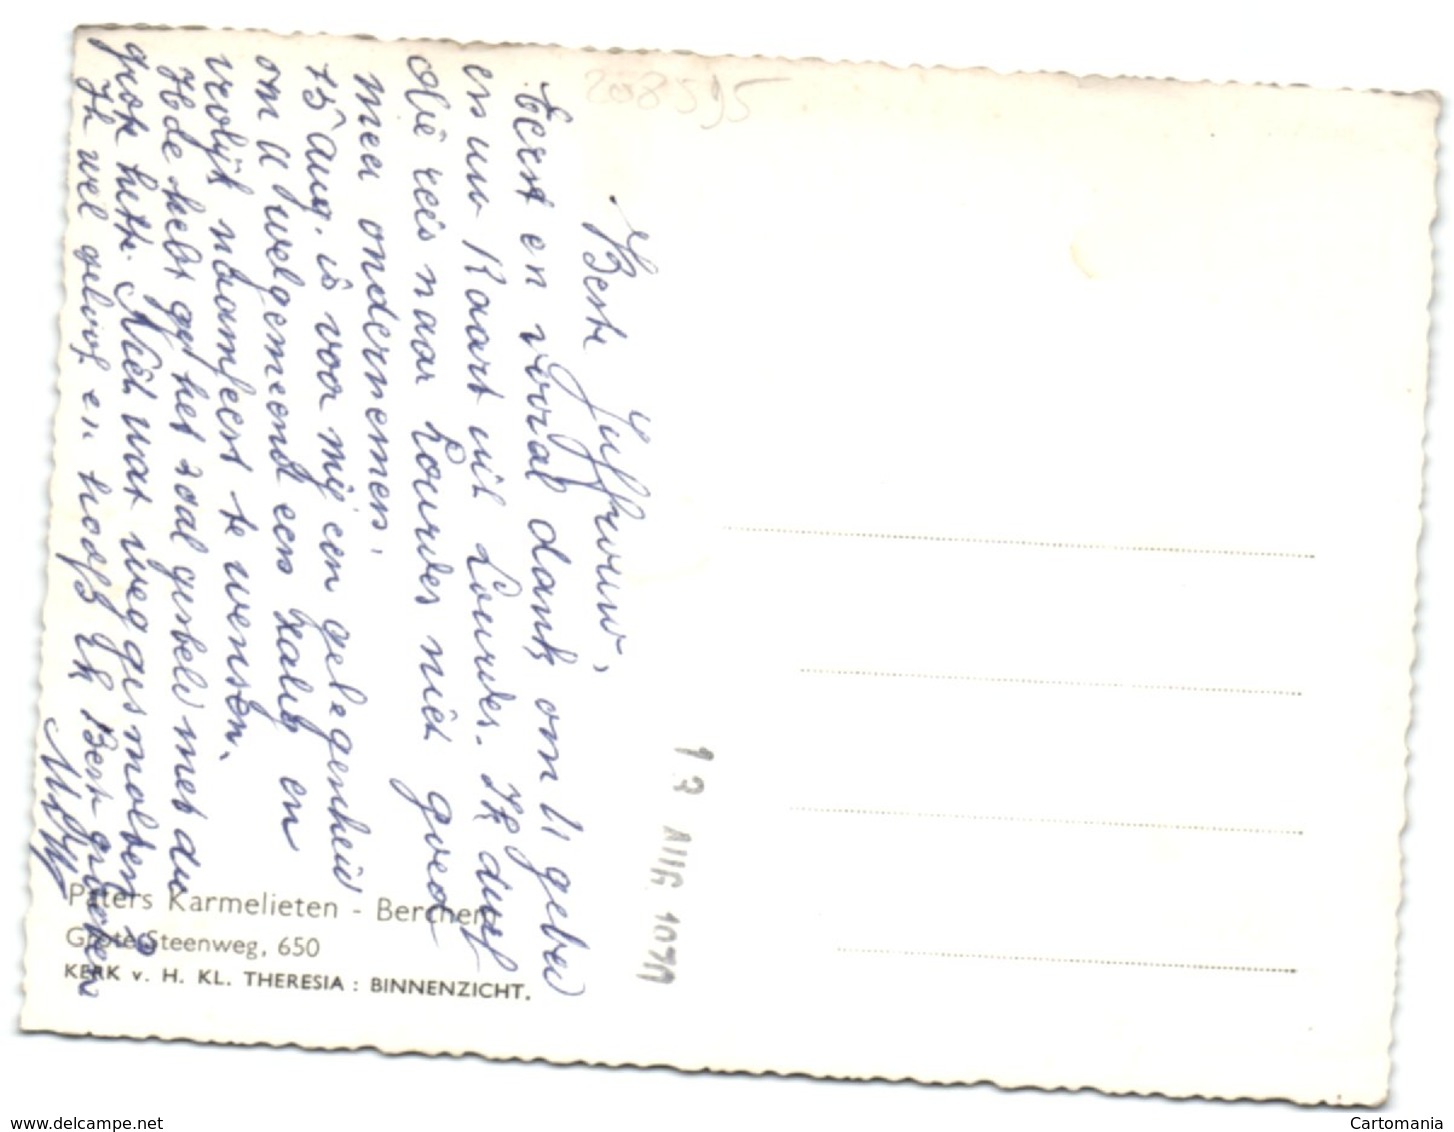 208595
Beste Juffrouw,
Eerst en vooral dank om U gebed
en uw Kaart uit Lourdes. Ik durf
die reis naar Lourdes niet goed
meer ondernemen.
15 Aug. is voor mij een gelegenheid
om U welgemeend een zalig en
vrolijk naamfeest te wensen.
hebt ge het zaal gesteld met du
grote hitte. Niet wat weggesmolten?
Ik wel geloof en hoop ik Beste groeten
Paters Karmelieten - Berchem
Grote Steenweg, 650
KERK v. H. KL. THERESIA : BINNENZICHT.
13 AUG 1970
www.delcampe.net
Cartomania